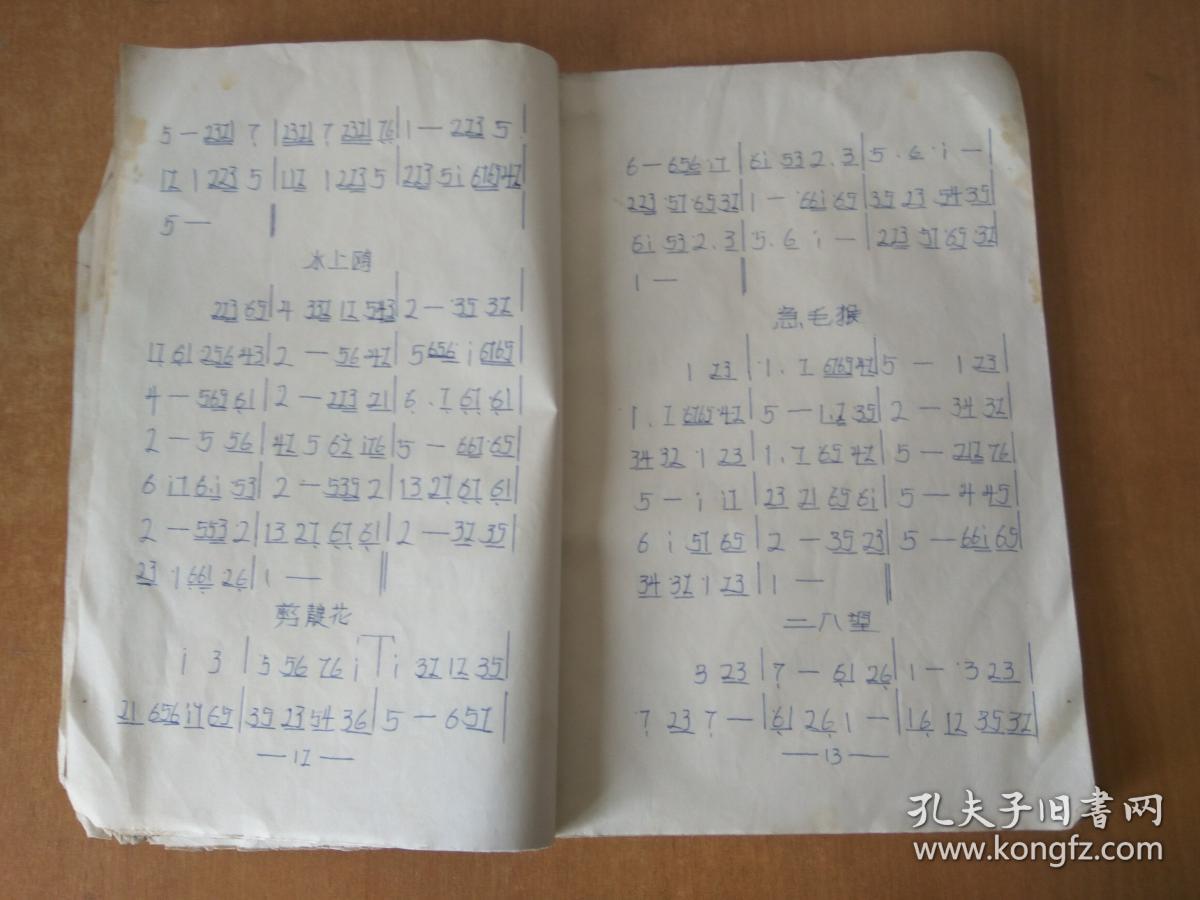 5 — 232 7 | 2321 7 2321 76 | 1 — 223 5 |
12 1 223 5 | 112 1 223 5 | 223 5i 6765 42 |
5 — ‖
水上鸥
223 65 | 4 332 12 543 | 2 — 35 32 |
17 61 256 43 | 2 — 56 42 | 5 656 i 6765 |
4 — 565 61 | 2 — 223 21 | 6 . 7 67 61 |
2 — 5 56 | 42 5 67 i76 | 5 — 667 65 |
6 i7 6.i 53 | 2 — 535 2 | 13 27 67 61 |
2 — 553 2 | 13 27 67 61 | 2 — 32 35 |
23 1 661 26 | 1 — ‖
剪靛花
i 3 | 5 56 76 i | i 32 12 35 |
21 656 i7 65 | 35 23 54 36 | 5 — 6 57 |
— 12 —
6 — 656 i7 | 6i 53 2 . 3 | 5 . 6 i — |
223 57 65 32 | 1 — 66i 65 | 35 23 54 35 |
6i 53 2 . 3 | 5 . 6 i — | 223 57 65 32 |
1 — ‖
急毛猴
1 23 | 1 . 2 6765 42 | 5 — 1 23 |
1 . 2 6765 42 | 5 — 1.2 35 | 2 — 34 32 |
34 32 1 23 | 1 . 2 65 42 | 5 — 212 76 |
5 — i i7 | 23 21 65 6i | 5 — 4 45 |
6 i 57 65 | 2 — 35 23 | 5 — 66i 65 |
34 32 1 23 | 1 — ‖
二八望
3 23 | 7 — 61 26 | 1 — 3 23 |
7 23 7 — | 61 26 1 — | 16 12 35 32 |
— 13 —
孔夫子旧书网
www.kongfz.com